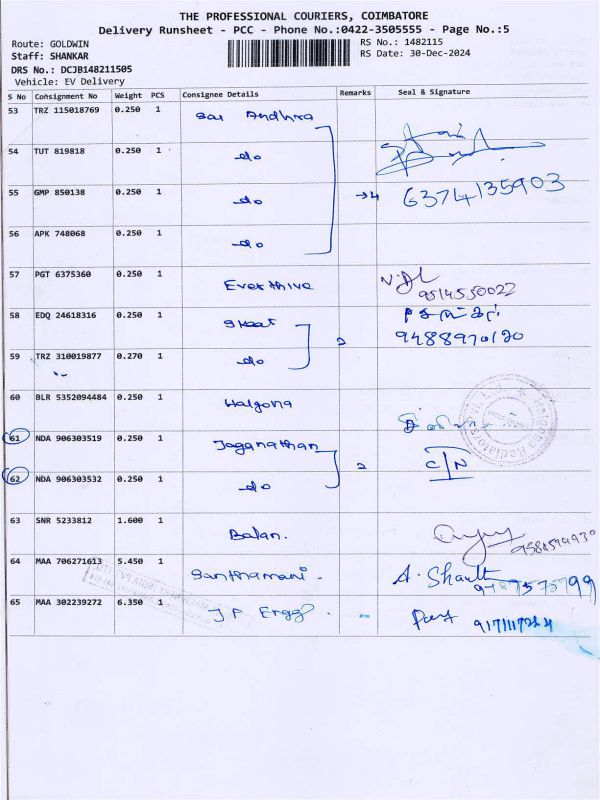 THE PROFESSIONAL COURIERS, COIMBATORE
Delivery Runsheet - PCC - Phone No.:0422-3505555 - Page No.:5
Route: GOLDWIN RS No.: 1482115
Staff: SHANKAR RS Date: 30-Dec-2024
DRS No.: DCJB148211505
Vehicle: EV Delivery
S No Consignment No Weight PCS Consignee Details Remarks Seal & Signature
53 TRZ 115018769 0.250 1 Sai Andhra
54 TUT 819818 0.250 1 do
55 GMP 850138 0.250 1 do →4 6374135903
56 APK 748068 0.250 1 do
57 PGT 6375360 0.250 1 Everthive 9514550022
58 EDQ 24618316 0.250 1
59 TRZ 310019877 0.270 1 do 2 9488970120
60 BLR 5352094484 0.250 1 Halgona
61 NDA 906303519 0.250 1 Jaganathan
62 NDA 906303532 0.250 1 do 2
63 SNR 5233812 1.600 1 Balan.
64 MAA 706271613 5.450 1 Santhamani.
65 MAA 302239272 6.350 1 J P Engg